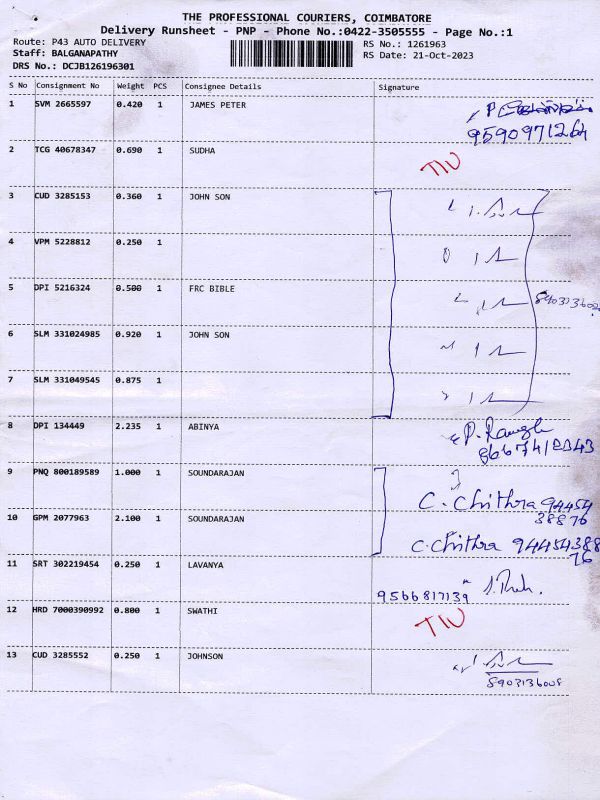 THE PROFESSIONAL COURIERS, COIMBATORE
Delivery Runsheet - PNP - Phone No.:0422-3505555 - Page No.:1
Route: P43 AUTO DELIVERY
RS No.: 1261963
Staff: BALGANAPATHY
RS Date: 21-Oct-2023
DRS No.: DCJB126196301
S No Consignment No Weight PCS Consignee Details Signature
1 SVM 2665597 0.420 1 JAMES PETER
9590971264
2 TCG 40678347 0.690 1 SUDHA
3 CUD 3285153 0.360 1 JOHN SON
4 VPM 5228812 0.250 1
5 DPI 5216324 0.500 1 FRC BIBLE
6 SLM 331024985 0.920 1 JOHN SON
7 SLM 331049545 0.875 1
8 DPI 134449 2.235 1 ABINYA
9 PNQ 800189589 1.000 1 SOUNDARAJAN
C. Chithra 94454
38876
10 GPM 2077963 2.100 1 SOUNDARAJAN
C. Chithra 94454388
76
11 SRT 302219454 0.250 1 LAVANYA
9566817139
12 HRD 7000390992 0.800 1 SWATHI
13 CUD 3285552 0.250 1 JOHNSON
8903136008